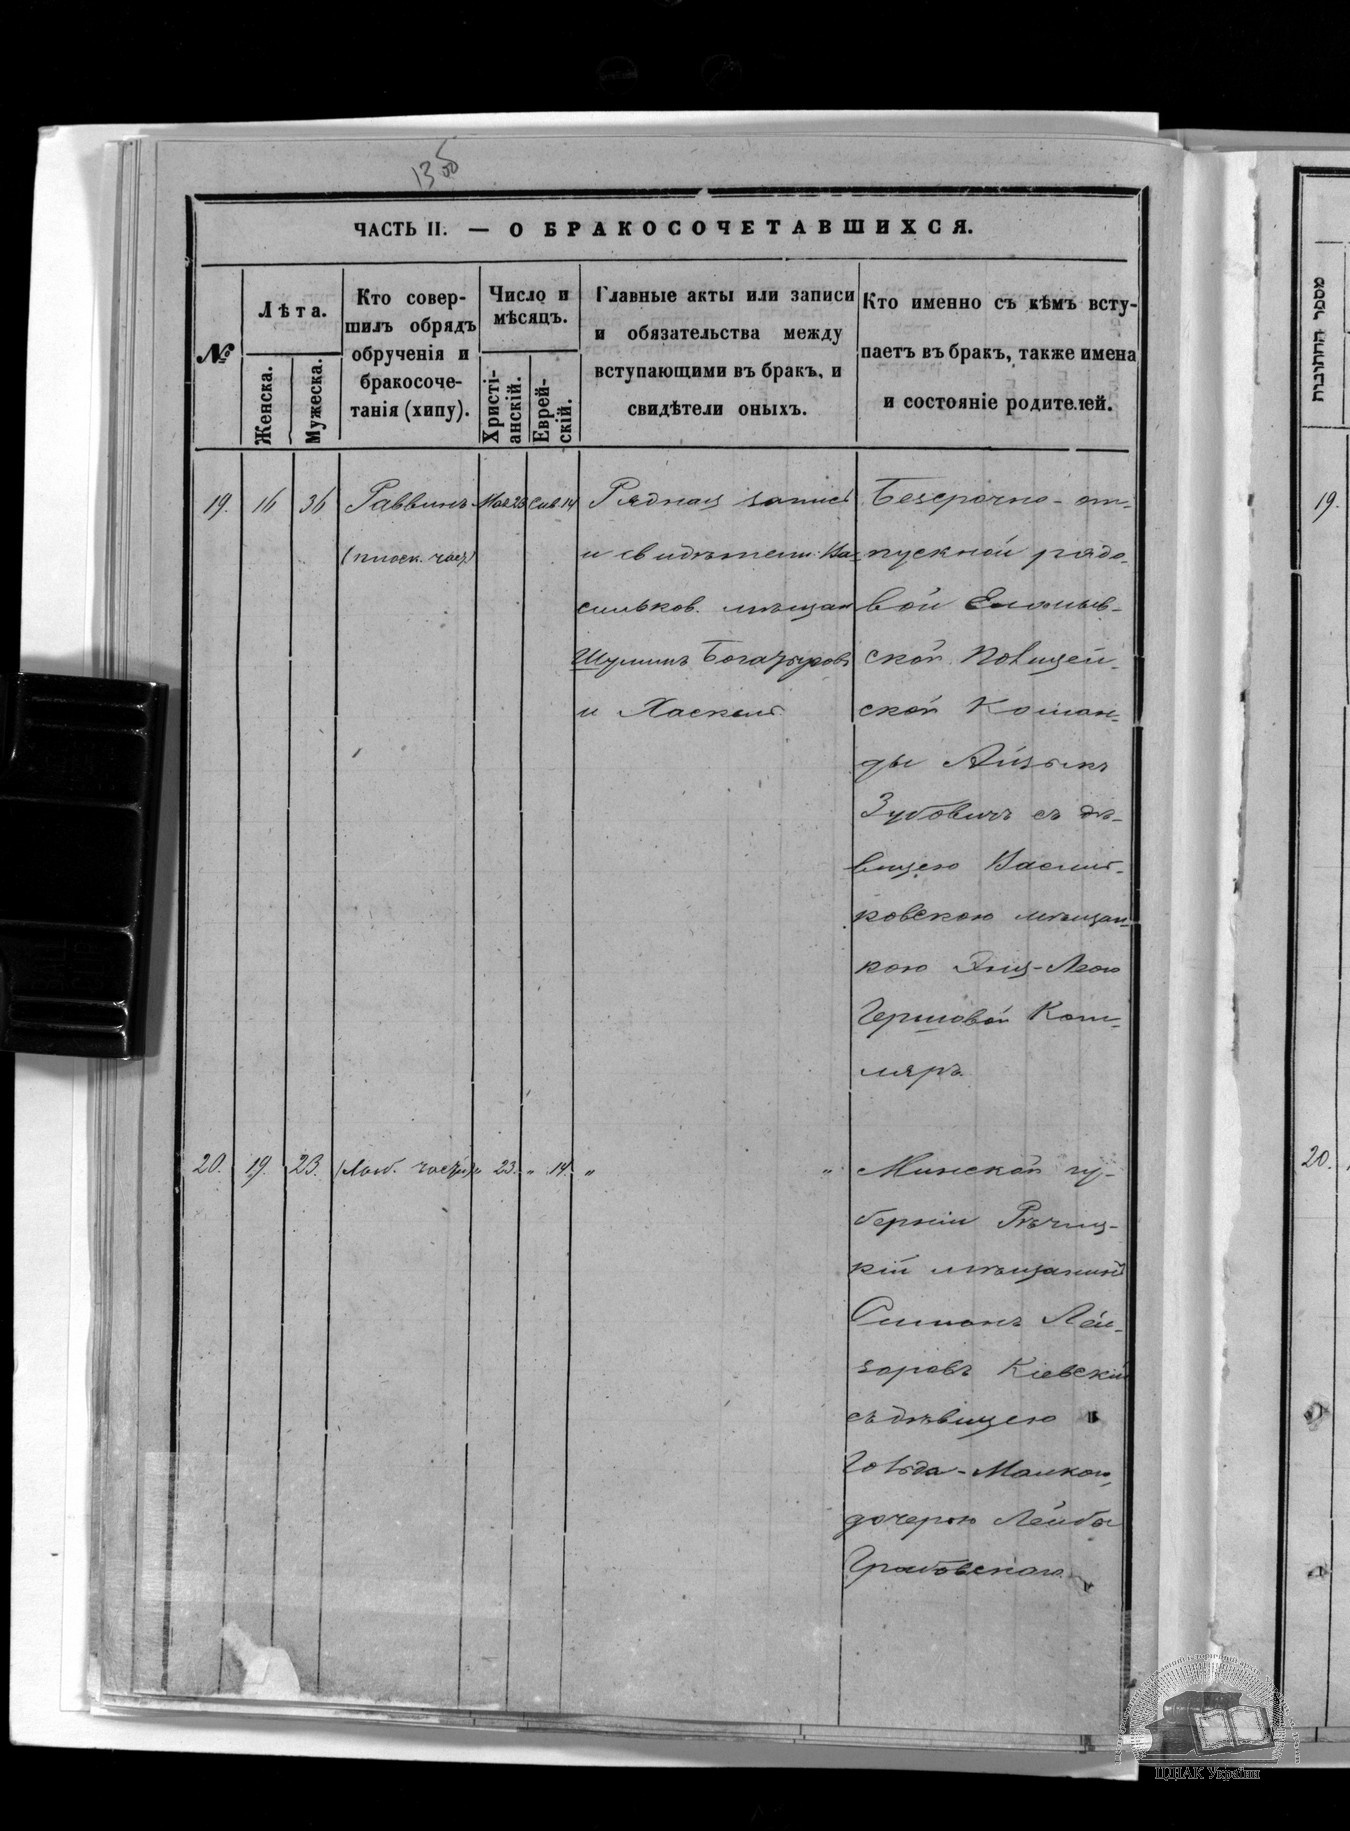 13 об
ЧАСТЬ II. — О БРАКОСОЧЕТАВШИХСЯ.
№
Лѣта.
Женска.
Мужеска.
Кто совер-
шилъ обрядъ
обрученія и
бракосоче-
танія (хипу).
Число и
мѣсяцъ.
Христі-
анскій.
Еврей-
скій.
Главные акты или записи
и обязательства между
вступающими въ бракъ, и
свидѣтели оныхъ.
Кто именно съ кѣмъ всту-
паетъ въ бракъ, также имена
и состояніе родителей.
19.
16
36
Раввинъ
(плоск. част)
Мая 23
Сив. 14
Рядная запись
и свидѣтели Ва-
сильков. мѣщан
Шулимъ
и Хаскель
Безсрочно-от-
пускной рядо-
вой
ской Полицей-
ской Коман-
ды Айзикъ
Зубовичъ съ дѣ-
вицею Василь-
ковскою мѣщан-
кою
Гершовой Кот-
ляръ
20.
19.
23.
" 23.
" 14.
" "
Минской гу-
берніи Рѣчиц-
кій мѣщанинъ
Симонъ Лей-
зоровъ Кіевскій
съ дѣвицею
Гольда-Малкою,
дочерью Лейбы
Грабовскаго
מספר החתונות
19.
20.
ЦДІАК України